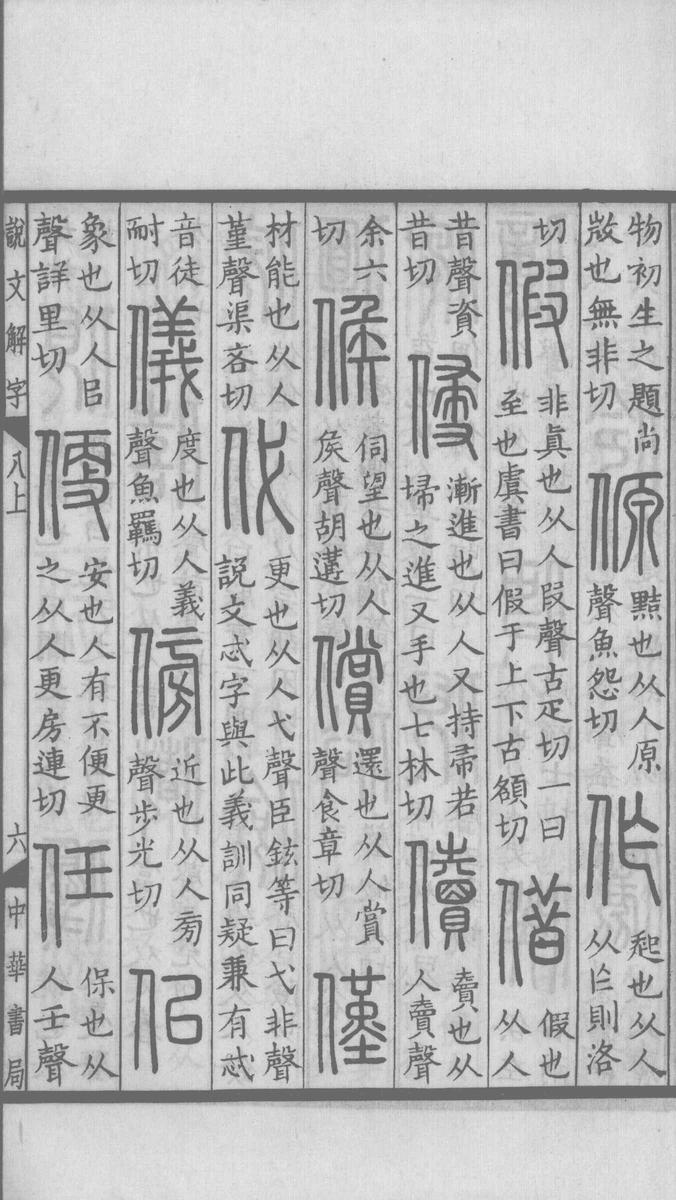 物初生之題尚敳也無非切傆黠也从人原聲魚怨切作起也从人从乍則洛
切假非眞也从人叚聲古疋切一曰至也虞書曰假于上下古頟切借假也从人
昔聲資昔切侵漸進也从人又持帚若埽之進又手也七林切儥賣也从人賣聲
余六切候伺望也从人矦聲胡遘切償還也从人賞聲食章切僅
材能也从人堇聲渠吝切代更也从人弋聲臣鉉等曰弋非聲說文忒字與此義訓同疑兼有忒
音徒耐切儀度也从人義聲魚羈切傍近也从人㫄聲步光切佀
象也从人㠯聲詳里切便安也人有不便更之从人更房連切任保也从人壬聲
說文解字 八上 六 中華書局